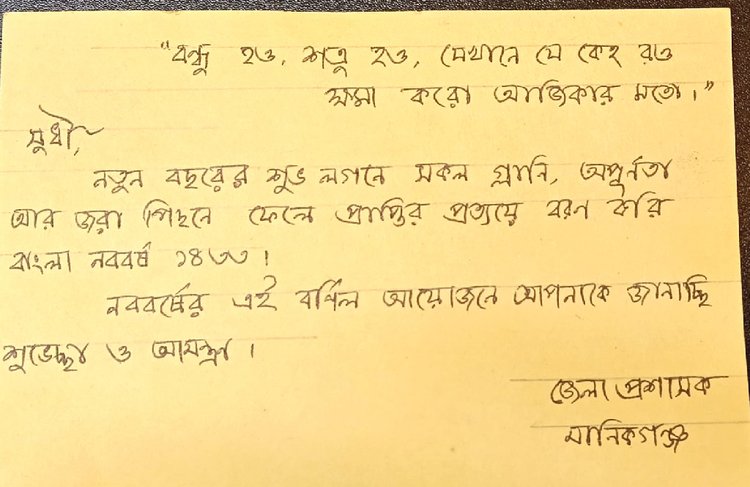 "বন্ধু হও, শত্রু হও, যেখানে যে কেহ রও
ক্ষমা করো আজিকার মতো।"
সুধী,
নতুন বছরের শুভ লগনে সকল গ্লানি, অপূর্নতা
আর জরা পিছনে ফেলে প্রাপ্তির প্রত্যয়ে বরণ করি
বাংলা নববর্ষ ১৪৩৩!
নববর্ষের এই বর্ণিল আয়োজনে আপনাকে জানাচ্ছি
শুভেচ্ছা ও আমন্ত্রণ।
জেলা প্রশাসক
মানিকগঞ্জ